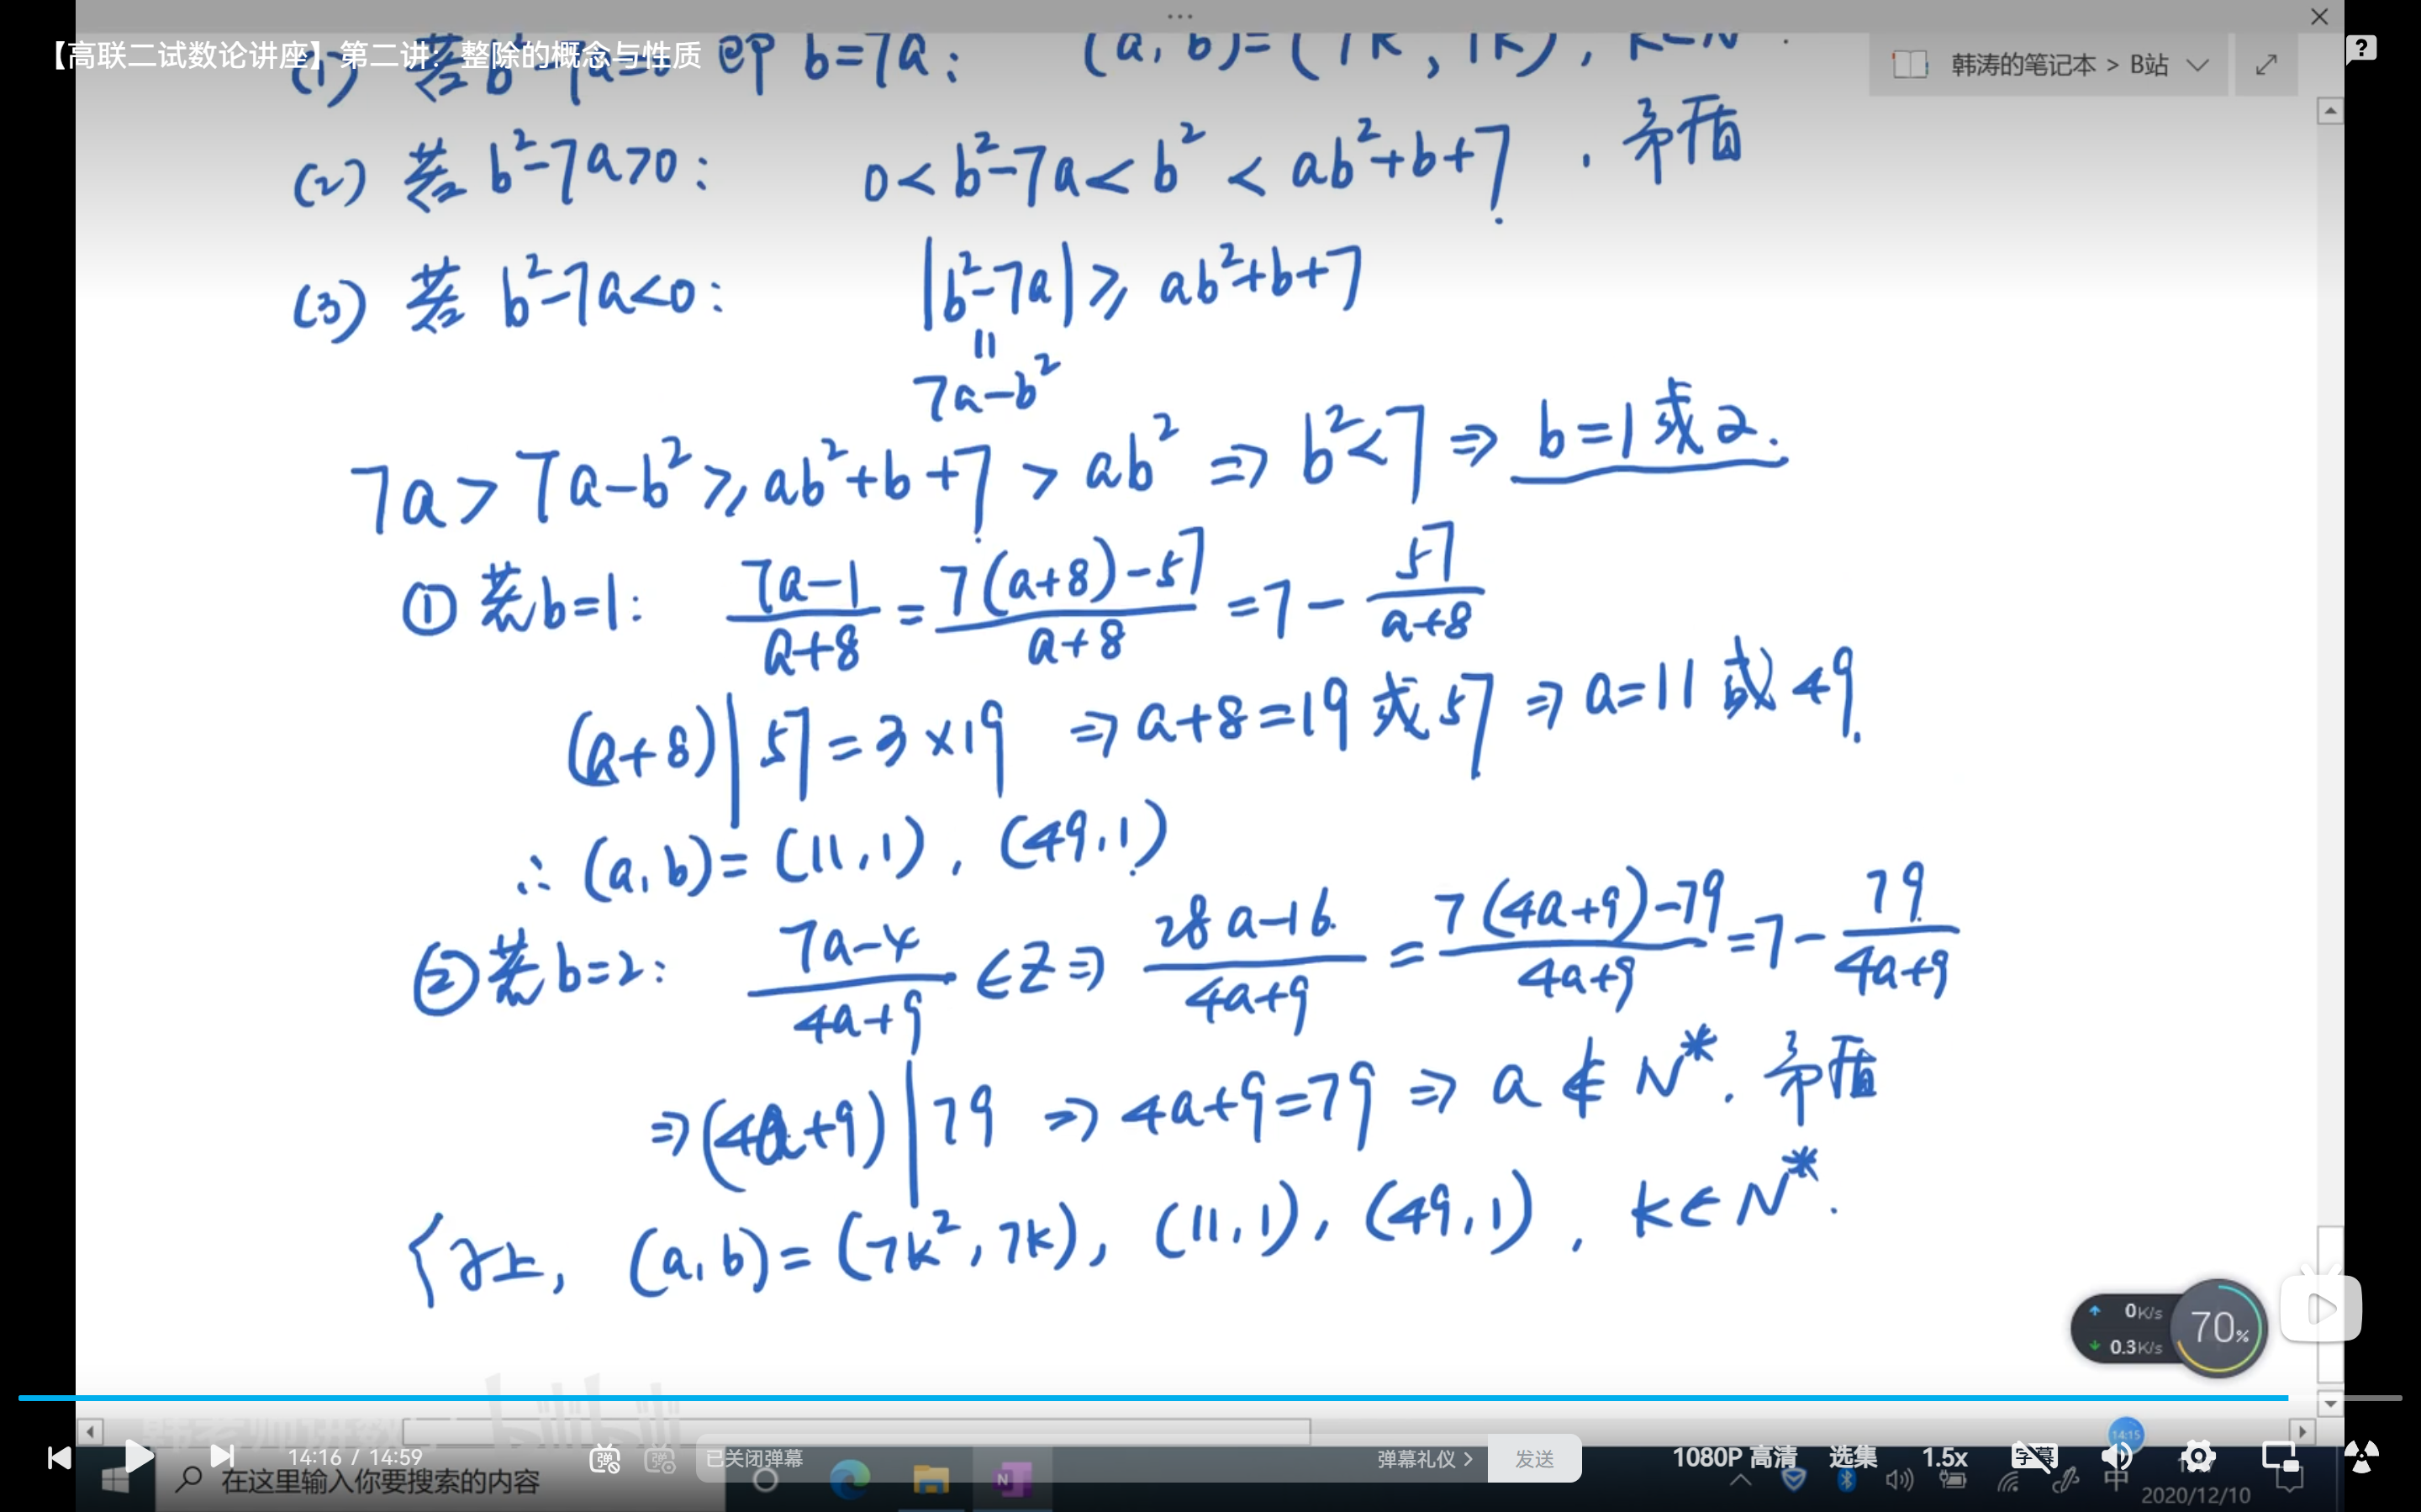 【高联二试数论讲座】第二讲：整除的概念与性质
韩涛的笔记本 > B站
(1) 若 b²-7a=0 即 b²=7a: (a, b)=(7k², 7k), k∈N*.
(2) 若 b²-7a>0: 0<b²-7a<b²<ab²+b+7, 矛盾.
(3) 若 b²-7a<0: |b²-7a|≥ab²+b+7
=
7a-b²
7a>7a-b²≥ab²+b+7>ab² ⇒ b²<7 ⇒ b=1或2.
① 若b=1: (7a-1)/(a+8)=(7(a+8)-57)/(a+8)=7-57/(a+8)
(a+8)|57=3×19 ⇒ a+8=19或57 ⇒ a=11或49.
∴ (a,b)=(11,1), (49,1).
② 若b=2: (7a-4)/(4a+9)∈Z⇒(28a-16)/(4a+9)=(7(4a+9)-79)/(4a+9)=7-79/(4a+9)
⇒(4a+9)|79 ⇒ 4a+9=79 ⇒ a∉N*. 矛盾
综上, (a,b)=(7k²,7k), (11,1), (49,1), k∈N*.
0K/s
0.3K/s
70%
14:15
14:16 / 14:59
已关闭弹幕
弹幕礼仪 >
发送
1080P 高清
选集
1.5x
字幕
在这里输入你要搜索的内容
中
2020/12/10